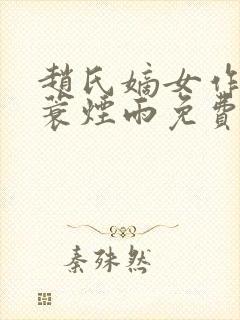 趙氏嫡女作
蓑煙雨免費
秦殊然